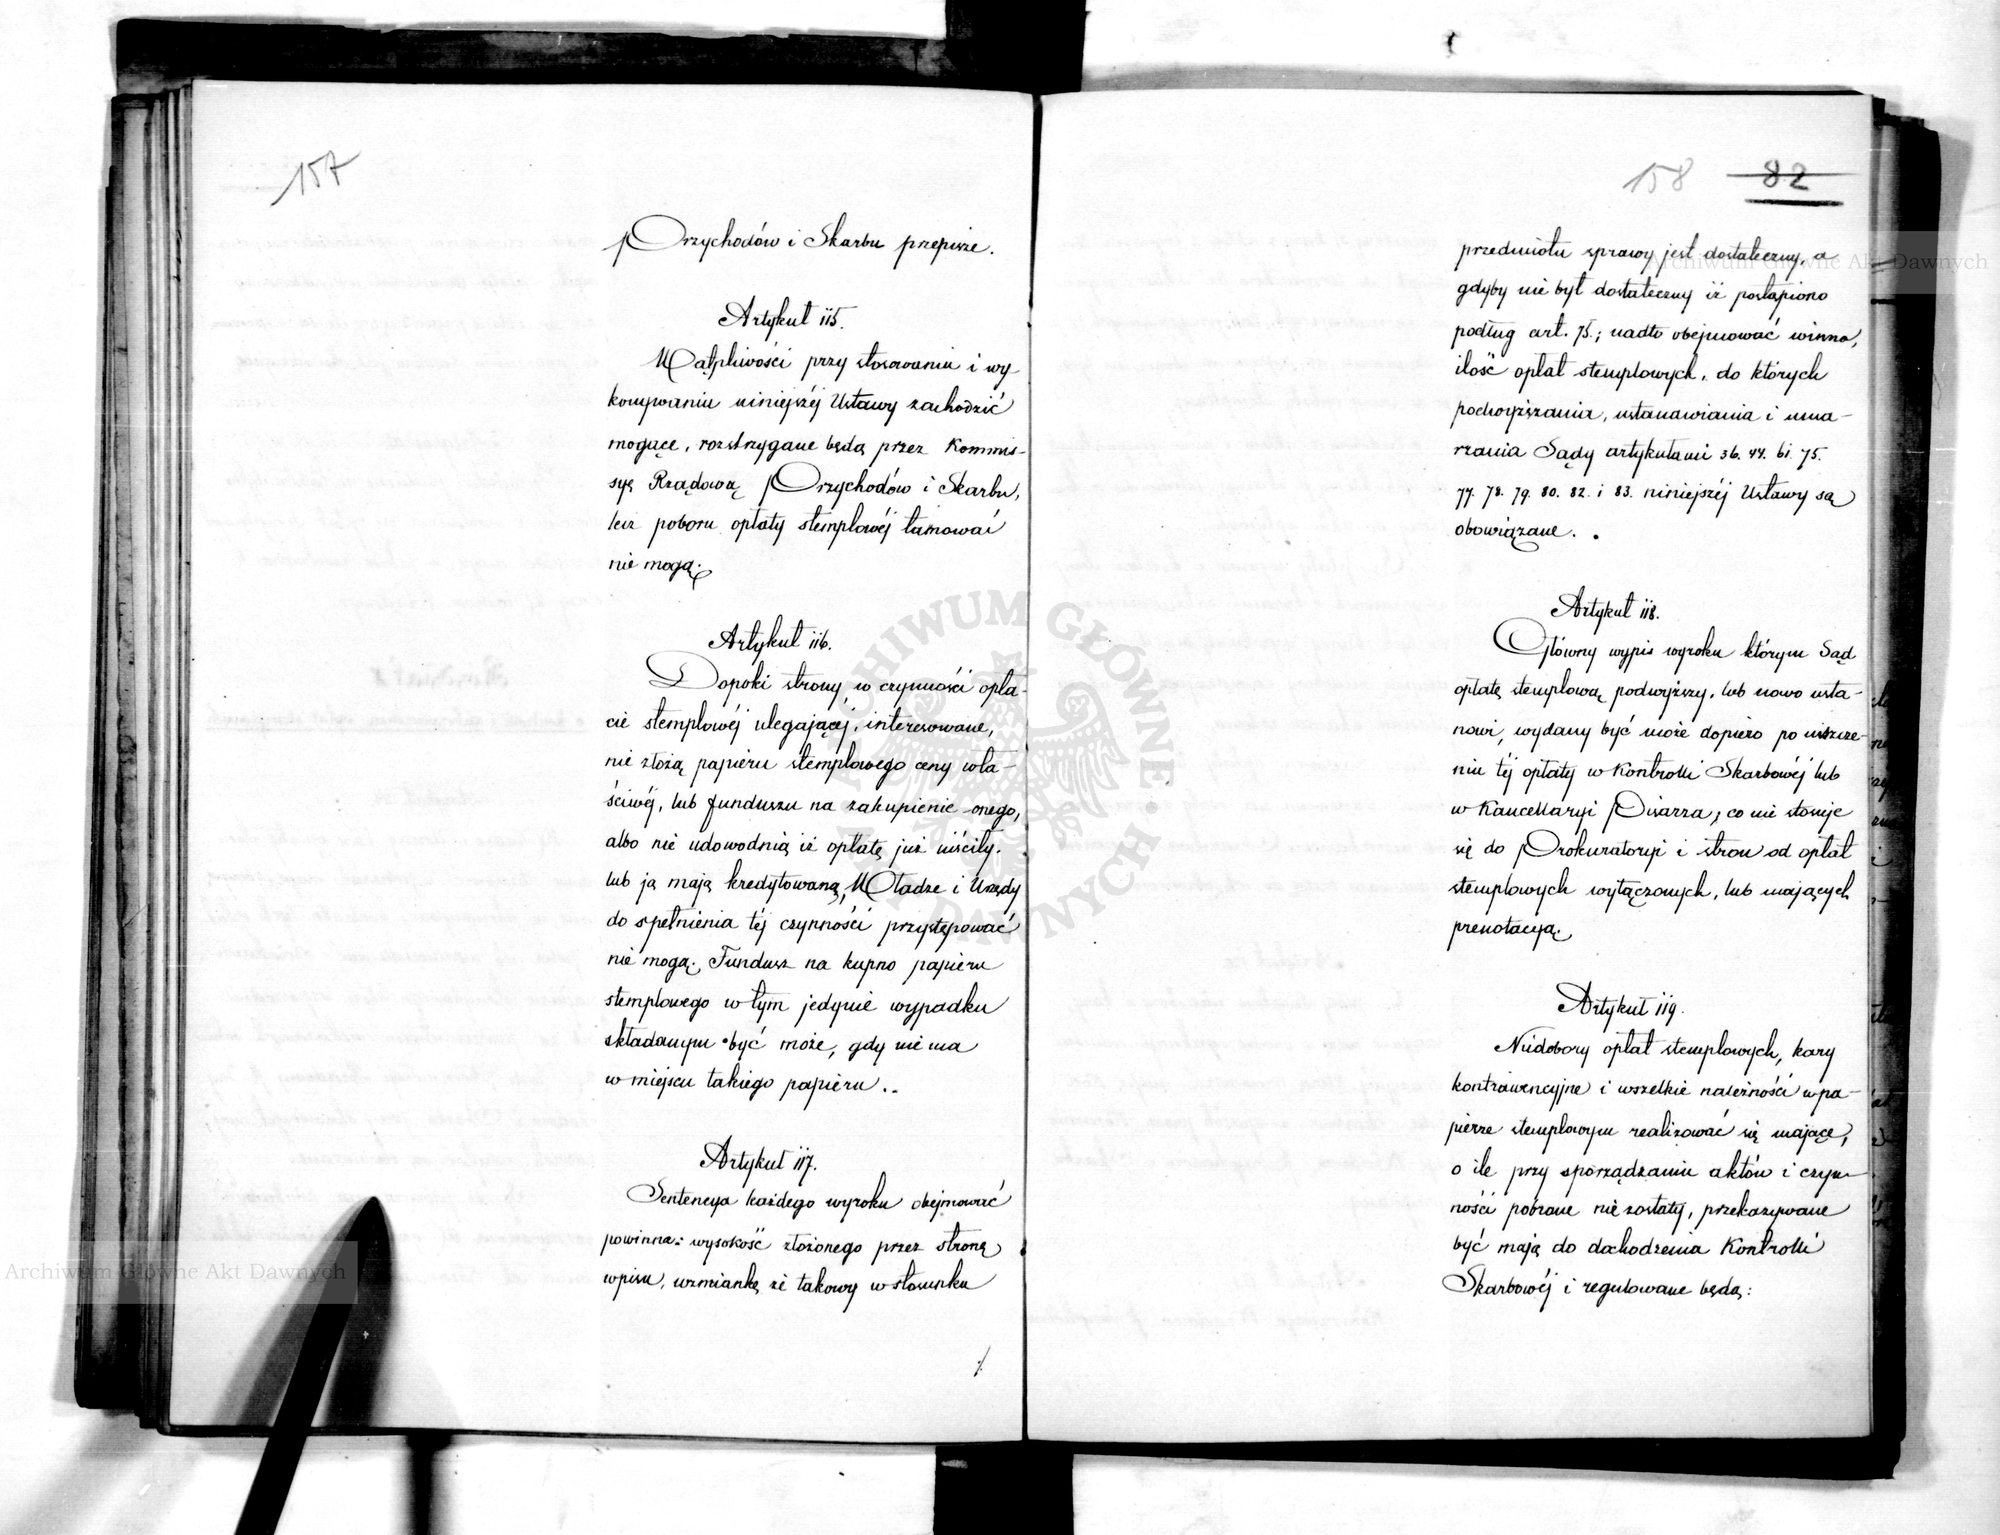 157
Przychodów i Skarbu przepisze.
Artykuł 115.
Wątpliwości przy stosowaniu i wy-
konywaniu niniejszéj Ustawy zachodzić
mogące, rozstrzygane będą przez Kommis-
syę Rządową Przychodów i Skarbu,
lecz poboru opłaty stemplowéj tamować
nie mogą.
Artykuł 116.
Dopóki strony w czynności opła-
cie stemplowéj ulegającéj, interesowane,
nie złożą papieru stemplowego ceny wła-
ściwéj, lub funduszu na zakupienie onego,
albo nie udowodnią iż opłatę już uiściły.
lub ją mają kredytowaną, Władze i Urzędy
do spełnienia téj czynności przystępować
nie mogą. Fundusz na kupno papieru
stemplowego w tym jedynie wypadku
składanym być może, gdy nie ma
w miejscu takiego papieru..
Artykuł 117.
Sentencya każdego wyroku obejmować
powinna: wysokość złożonego przez stronę
wpisu, wzmiankę że takowy w stosunku
./.
158 82
przedmiotu sprawy jest dostateczny, a
gdyby nie był dostateczny iż postąpiono
podług art. 75.; nadto obejmować winna,
ilość opłat stemplowych, do których
podwyższania, ustanawiania i uma-
rzania Sądy artykułami 36. 44. 61. 75.
77. 78. 79. 80. 82. i 83. niniejszéj Ustawy są
obowiązane.
Artykuł 118.
Główny wypis wyroku którym Sąd
opłatę stemplową podwyższy, lub nowo usta-
nowi, wydany być może dopiero po uiszcze-
niu téj opłaty w Kontrolli Skarbowéj lub
w Kancellaryi Pisarza; co nie stosuje
się do Prokuratoryi i stron od opłat
stemplowych wyłączonych, lub mających
prenotacyą.
Artykuł 119.
Niedobory opłat stemplowych, kary
kontrawencyjne i wszelkie należności w pa-
pierze stemplowym realizować się mające,
o ile przy sporządzaniu aktów i czyn-
ności pobrane nie zostały, przekazywane
być mają do dochodzenia Kontrolli
Skarbowéj i regulowane będą:
Archiwum Główne Akt Dawnych
Archiwum Główne Akt Dawnych
ARCHIWUM GŁÓWNE AKT DAWNYCH